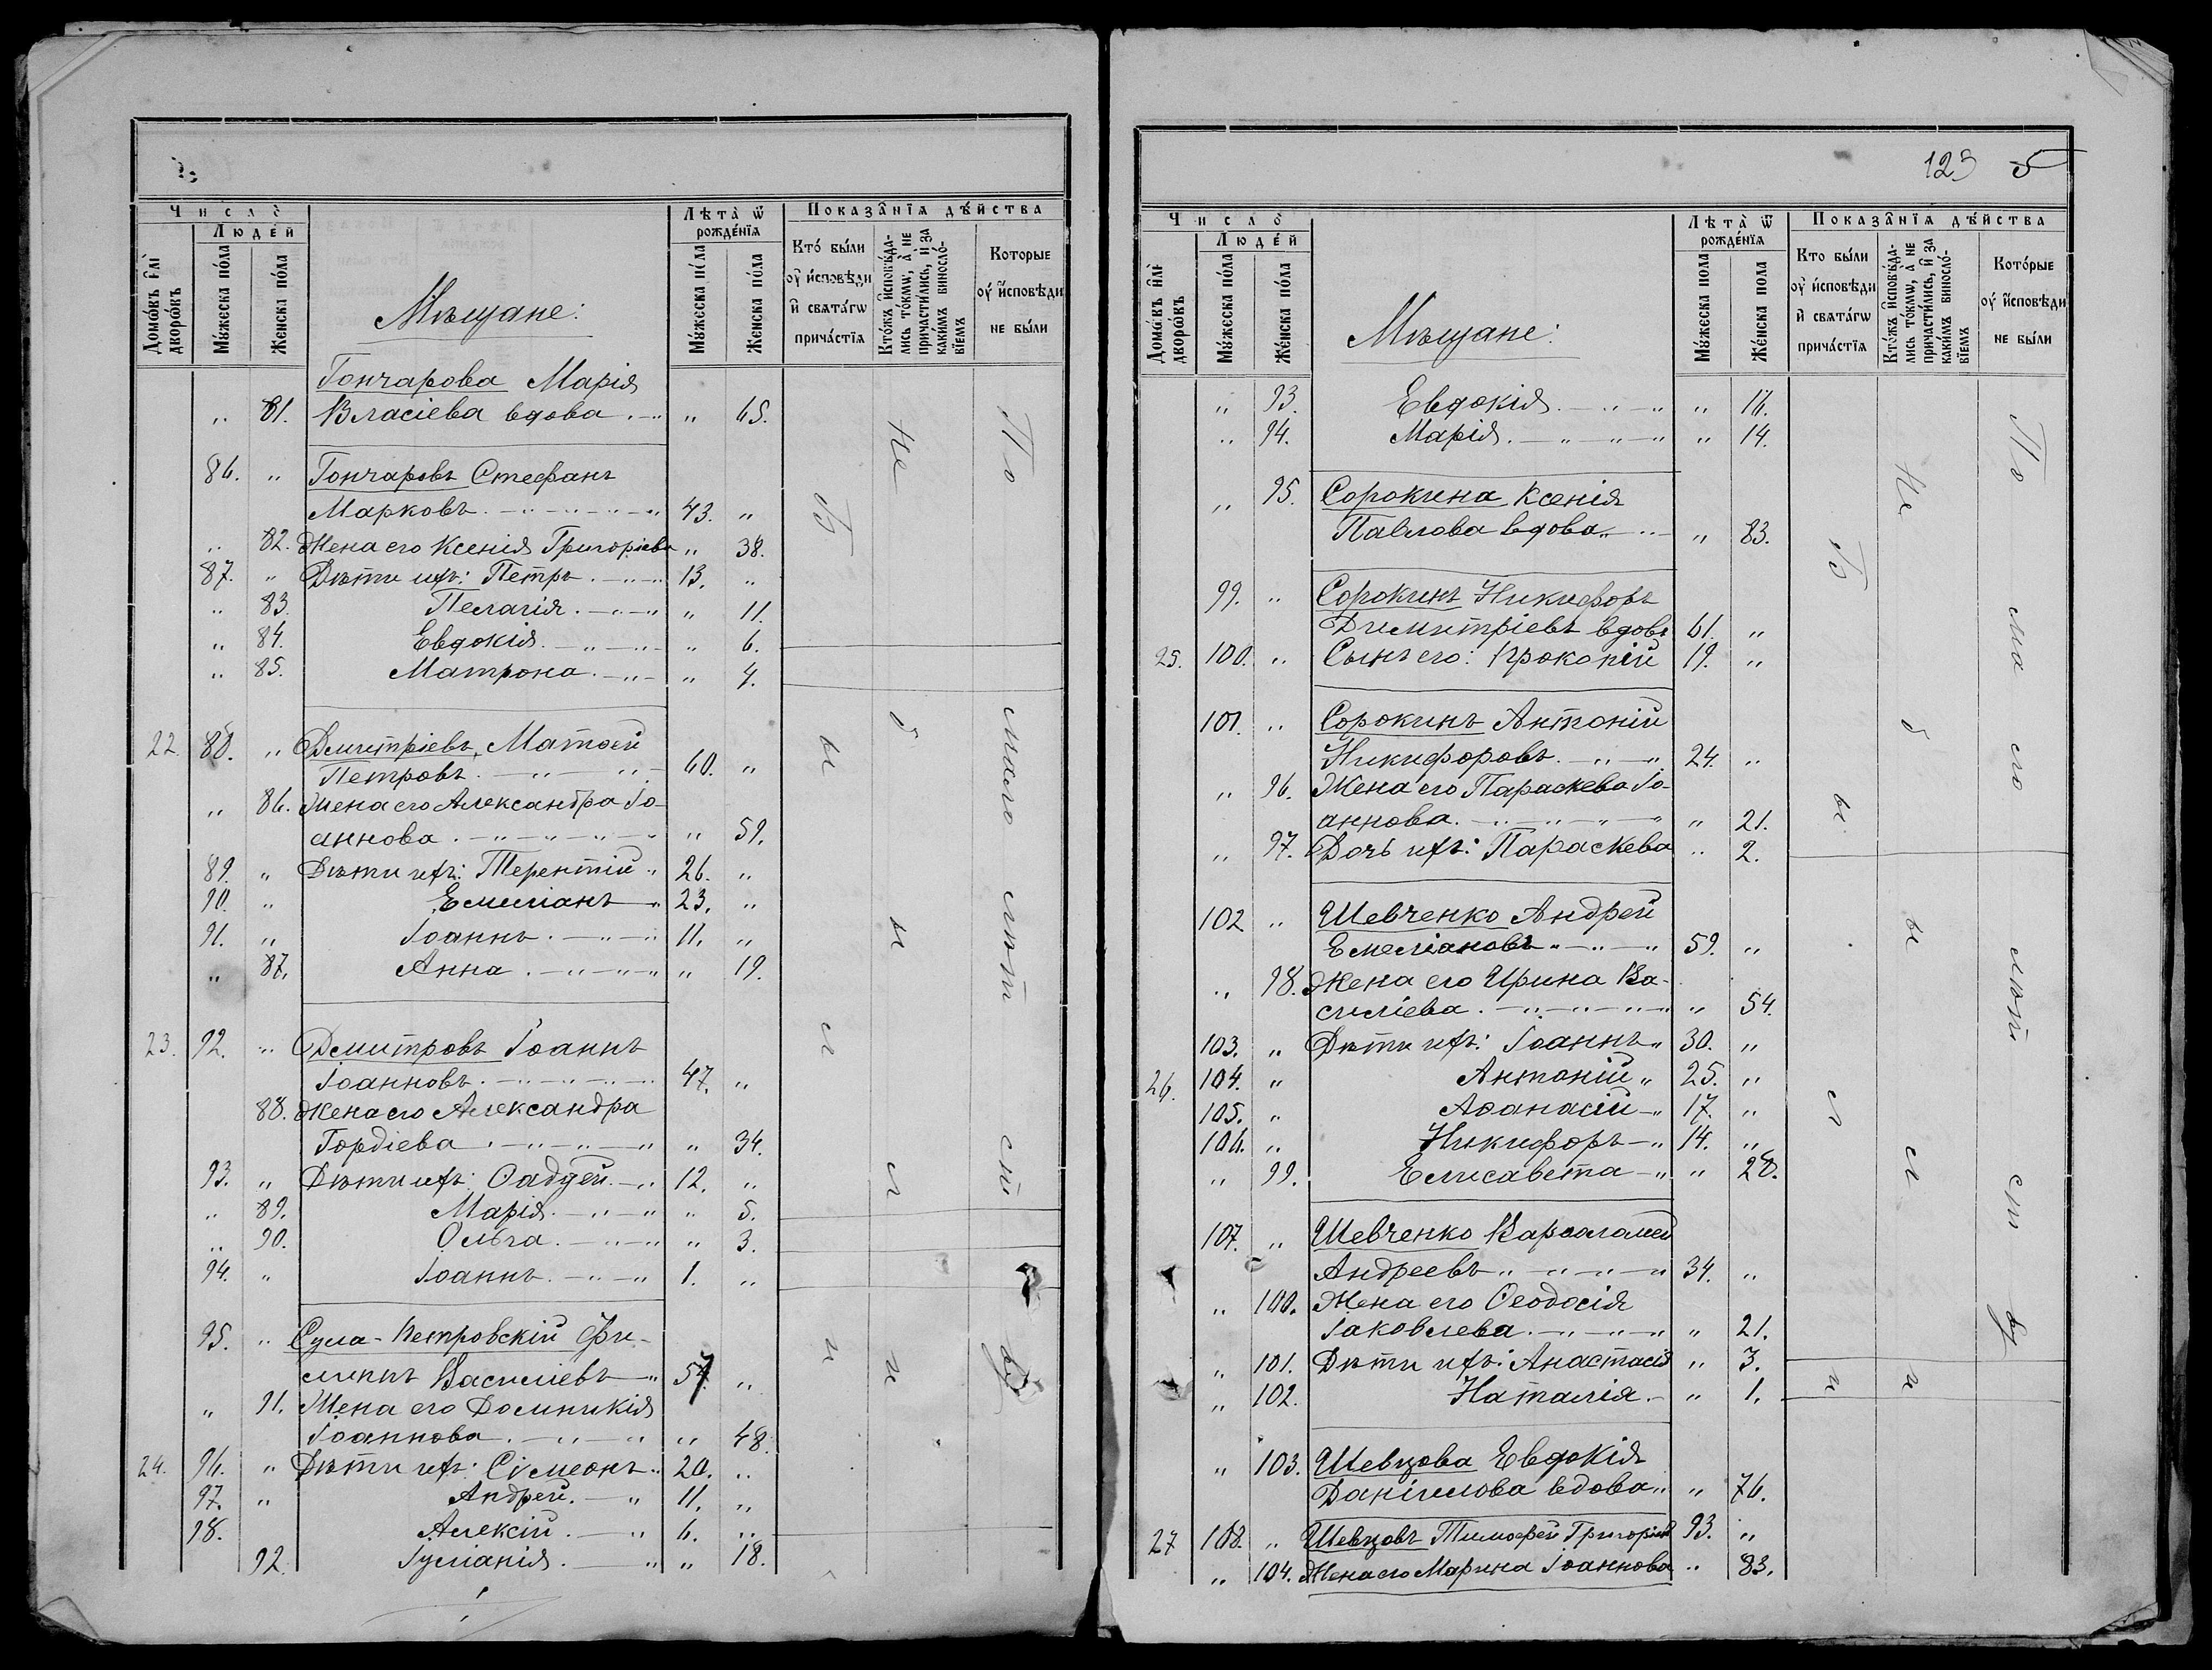 Число̀
Люде́й
Домо́въ и҆лѝ
дворо́въ
Му́жеска по́ла
Же́нска по́ла
Мѣщане:
Лѣта̀ ѿ
рожде́нїѧ
Му́жеска по́ла
Же́нска по́ла
Показа̑нїѧ дѣ́йства
Кто́ бы́ли
ᲂу҆ и҆сповѣ́ди
и҆ свѧта́гѡ
прича́стїѧ
Кто́жъ и҆сповѣ́да-
лись то́кмѡ, а҆ не
причасти́лись, и҆ за
каки́мъ виносло́-
вїемъ
Которые
ᲂу҆ и҆сповѣ́ди
не бы́ли
Гончарова Марія
„ 81. Власіева вдова . — „ „ 65.
86. „ Гончаровъ Стефанъ
Марковъ . — „ — „ — „ 43. „
„ 82. Жена его Ксенія Григоріева „ 38.
87. „ Дѣти ихъ: Петръ . — „ — „ 13. „
„ 83. Пелагія . — „ — „ „ 11.
„ 84. Евдокія . — „ — „ „ 6.
„ 85. Матрона . — „ — „ 4.
22. 88. „ Дмитріевъ, Матѳей
Петровъ . — „ — „ — 60. „
„ 86. Жена его Александра Іо-
аннова . — „ — „ — „ „ 59.
89. „ Дѣти ихъ: Терентій „ 26. „
90. „ Емиліанъ — „ 23. „
91. „ Іоаннъ . — „ — „ 11. „
„ 87. Анна . — „ — „ — „ „ 19.
23. 92. „ Дмитровъ Іоаннъ
Іоанновъ . — „ — „ — „ 47. „
88. Жена его Александра
Гордіева . — „ — „ — „ „ 34.
93. „ Дѣти ихъ: Ѳаддей . — „ 12. „
„ 89. Марія . — „ — „ „ 5.
„ 90. Ольга . — „ — „ „ 3.
94. „ Іоаннъ . — „ — „ 1. „
95. „ Сула-Петровскій Фи-
липпъ Василіевъ — „ 57. „
„ 91. Жена его Домникія
Іоаннова . — „ — „ „ 48.
24. 96. „ Дѣти ихъ: Сімеонъ „ 20. „
97. „ Андрей . — „ 11. „
98. Алексій . — „ 6. „
92. Іуліанія . — „ „ 18.
Не
были
Не
были
По
малолѣтст
ву
123 5
Число̀
Люде́й
Домо́въ и҆лѝ
дворо́въ
Му́жеска по́ла
Же́нска по́ла
Мѣщане:
Лѣта̀ ѿ
рожде́нїѧ
Му́жеска по́ла
Же́нска по́ла
Показа̑нїѧ дѣ́йства
Кто бы́ли
ᲂу҆ и҆сповѣ́ди
и҆ свѧта́гѡ
прича́стїѧ
Кто́жъ и҆сповѣ́да-
лись то́кмѡ, а҆ не
причасти́лись, и҆ за
каки́мъ виносло́-
вїемъ
Кото́рые
ᲂу҆ и҆сповѣ́ди
не бы́ли
„ 93. Евдокія . — „ — „ „ 16.
„ 94. Марія . — „ — „ — „ „ 14.
„ 95. Сорокина Ксенія
Павлова вдова „ — „ „ 83.
99. „ Сорокинъ Никифоръ
Димитріевъ вдовъ 61. „
25. 100. „ Сынъ его: Прокопій 19. „
101. „ Сорокинъ Антоній
Никифоровъ . — „ — „ 24. „
„ 96. Жена его Параскева Іо-
аннова . — „ — „ — „ „ 21.
„ 97. Дочь ихъ: Параскева „ 2.
102 „ Шевченко Андрей
Емеліановъ „ — „ — „ 59. „
„ 98. Жена его Ирина Ва-
силіева . — „ — „ — „ „ 54.
103. „ Дѣти ихъ: Іоаннъ „ 30. „
26. 104. „ Антоній „ 25. „
105. „ Аѳанасій — „ 17. „
106. „ Никифоръ — „ 14. „
„ 99. Елисавета — „ „ 28.
107. „ Шевченко Варѳоломей
Андреевъ „ — „ — „ 34. „
„ 100. Жена его Ѳеодосія
Іаковлева . — „ — „ — „ „ 21.
„ 101. Дѣти ихъ: Анастасія „ 3.
„ 102. Наталія . — „ 1.
„ 103. Шевцова Евдокія
Даніилова вдова „ „ 76.
27 108. „ Шевцовъ Тимофей Григоріев 93. „
„ 104. Жена его Марина Іоаннова „ 83.
Не
были
По
малолѣтст
ву